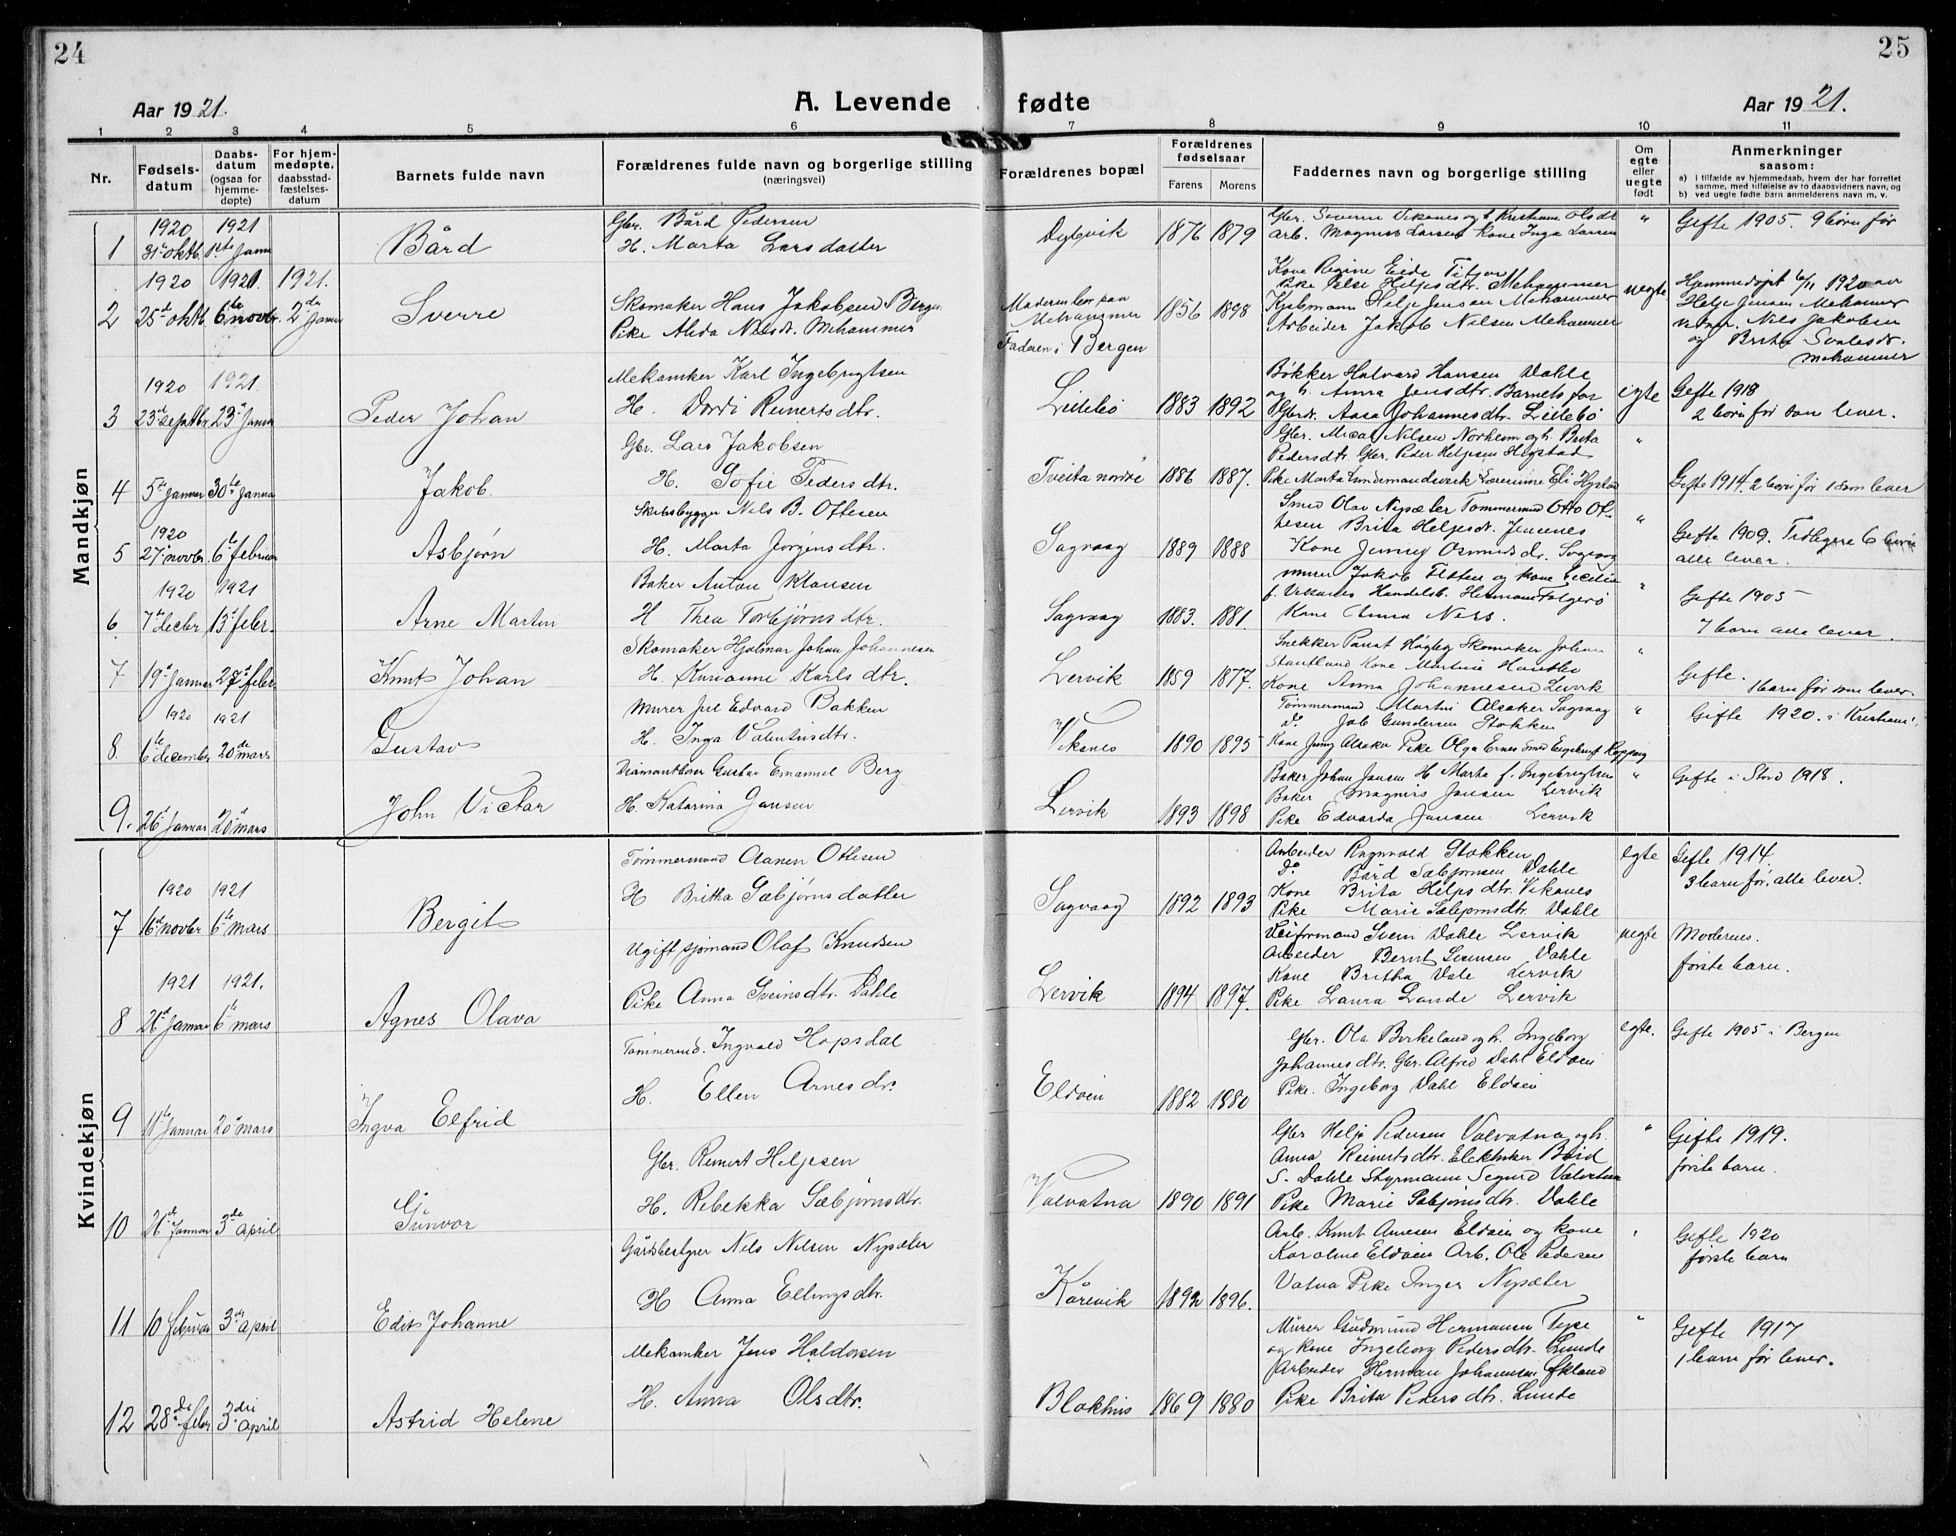 24
25
Aar 1921.
A. Levende fødte
Aar 1921.
1 2 3 4 5 6 7 8 9 10 11
Nr.
Fødsels-
datum
Daabs-
datum
(ogsaa for
hjemme-
døpte)
For hjem-
medøpte,
daabsstad-
fæstelses-
datum
Barnets fulde navn
Forældrenes fulde navn og borgerlige stilling
(næringsvei)
Forældrenes bopæl
Forældrenes
fødselsaar
Farens
Morens
Faddernes navn og borgerlige stilling
Om
egte
eller
uegte
født
Anmerkninger
saasom:
a) I tilfælde av hjemmedaab, hvem der har forrettet
samme, med tilføielse av to daabsvidners navn, og
b) ved uegte fødte barn anmelderens navn m. v.
Mandkjøn
1920 1921
1 31te oktb. 1ste Janu Bård
Gbr. Bård Pedersen
H. Marta Larsdatter
Dybvik 1876 1879
Arb. Magnus Larsen kone Inga Larsen
"
Gifte 1905. 9 børn før
1920 1920 1921.
2 25de oktb. 6te novbr. 2den Januar Sverre
Skomaker Hans Jakobsen Bergen
Pike Alida Nilsdt. Mehammer
Moderen
Mehammer
Faderen i Bergen
1856 1898
Kone Regine Eide
Pike Helgesdtr. Mehammer
Helje Jensen Mehammer
Arbeider Jakob Nilsen Mehammer
uegte
Hjemmedøpt 6/11 1920 av
Helje Jensen Mehamer
Nils Jakobsen
og Brita
Mehammer
1920 1921
3 23de septbr. 23de Janua Peder Johan
Mekaniker Karl Ingebrigtsen
H. Dordi Reinertsdtr.
Lillebø 1883 1892
Bøkker Halvard Hansen Dahle
og h. Anna Jensdtr. Barnets far
Aasa Johannesdtr. Lillebø
egte
Gifte 1918
2 børn før som lever.
4 5te Januar 30te Janua Jakob
Gbr. Lars Jakobsen
H. Sofie Pedersdtr.
Tveita nordre 1886 1887.
Gbr. Nilsen Norheim og h. Brita
Pedersdtr Gbr. Peder Heljesen Hystad
"
Gifte 1914. 2 børn før 1 som lever
1920
5 27de novbr. 6te februar Asbjørn
Skibsbygger Nils B. Ottesen
H. Marta Jørgensdtr.
Sagvaag 1889 1888
Smed Olav Nysæter Tømmermand Otto Ot-
tesen Brita Heljesdt. Jensnes
Kone Jenny Osmundsdr. Sagvaag
"
Gifte 1909. Tidligere 6 børn
alle lever.
1920 1921
6. 7de decbr 13de febr. Arne Martin
Baker Anton Klausen
H Thea Torbjørnsdtr.
Sagvaag 1883. 1881.
murer Jakob Fløten og kone Cecilie
f. Vikanes Handelsb. Herman Folgerø
Kone Anna Ness.
"
Gifte 1905
7 børn alle lever.
7 19de Januar 27de febr. Knut Johan
Skomaker Hjalmar Johan Johannesen
H. Karlsdtr.
Lervik 1859 1877.
Snekker Skomaker Johan
Kone Martine
Kone Anna Johannesen Lervik
"
Gifte.
1 barn før som lever.
1920 1921
8. 6te december 20de mars Gustav
Murer Edvard Bakken
H. Inga Valentinsdtr.
Vikanes 1890 1895
Tømmermand Martin Alsaker Sagvaag
do. Job Gundersen Stokken
Kone Alsaker Pike Olga
"
Gifte 1920. i Kristiania
9. 26de Januar 20de mars John Victor
Gustav Emanuel Berg
H. Katarina Jansen
Lervik 1893 1898
Baker Johan Jansen H Marta f. Ingebrigtsen
Baker Magnus Jansen Lervik
Pike Edvarda Jansen Lervik
"
Gifte i Stord 1918.
Kvindekjøn
1920 1921
7 16de novbr 6te mars Bergit
Tømmermand Aanen Ottesen
H Britha Sæbjørnsdatter
Sagvaag 1892 1893
Arbeider Ragnvald Stokken
do. Bård Sæbjørnsen Dahle
Kone Brita Heljesdtr. Vikanes
Pike Marie Sæbjørnsdtr. Dahle
egte
Gifte 1914.
3 barn før, alle lever.
1921 1921.
8 26de Januar 6te mars Agnes Olava
Ugift sjømand Olaf Knudsen
Pike Anna Sveinsdtr. Dahle
Lervik 1894 1897.
Veiformand Svein Dahle Lervik
Arbeider Bernt Dahle
Kone Britha Dale Lervik
Pike Laura Lande Lervik
uegte
Moderens
første barn.
9 11te Januar 20de mars Ingva Elfrid
Tømmermd. Ingvald Hopsdal
H. Ellen Arnesdr.
Eldøen 1882 1880
Gbr. Ola Birkeland og h. Ingeborg
Johannesdtr. Gbr. Alfred Dahl Eldøen
Pike Ingeborg Dahl Eldøen
egte.
Gifte 1905 i Bergen
10 26de Januar 3de april Gunvor
Gbr. Reinert Heljesen
H. Rebekka Sæbjørnsdtr.
Valvatna 1890 1891
Gbr Helje Pedersen Valvatna og h.
Anna Reinertsdtr. Elektriker Bård
S. Dahle Styrmann Sigurd Valvatna
Pike Marie Sæbjørnsdtr. Dahle
"
Gifte 1919.
første barn.
11 10 februar 3de april Edit Johanne
Gårdsbestyrer Nils Nilsen Nysæter
H Anna Ellingsdtr.
Kårevik 1892 1896.
Arb. Knut Arnesen Eldøen og kone
Karoline Eldøen Arb. Ole Pedersen
Vatna Pike Inger Nysæter
"
Gifte 1920
første barn
12 28de febr 3dri april Astrid Helene
Mekaniker Jens Haldorsen
H. Anna Olsdtr.
Blokhus 1869 1880
Murer Gudmund Hermansen Tyse
og kone Ingeborg Pedersdtr. Lunde
Arbeider Herman Johannesen Økland
Pike Brita Pedersdtr. Lunde
"
Gifte 1917
1 barn før lever.